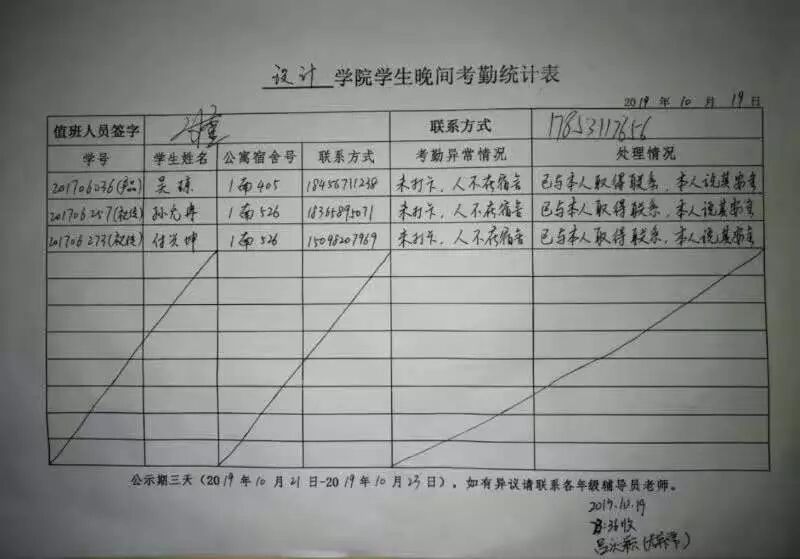 设计 学院学生晚间考勤统计表
2019 年 10 月 19 日
值班人员签字 联系方式 17853117656
学号 学生姓名 公寓宿舍号 联系方式 考勤异常情况 处理情况
201706036(产品) 吴琼 1南405 18456711238 未打卡,人不在宿舍 已与本人取得联系,本人说其安全
201706257(视传) 孙允 1南526 18365895071 未打卡,人不在宿舍 已与本人取得联系,本人说其安全
201706273(视传) 付兴坤 1南526 15098207969 未打卡,人不在宿舍 已与本人取得联系,本人说其安全
公示期三天(2019 年 10 月 21 日-2019 年 10 月 23 日),如有异议请联系各年级辅导员老师。
2019.10.19
36收